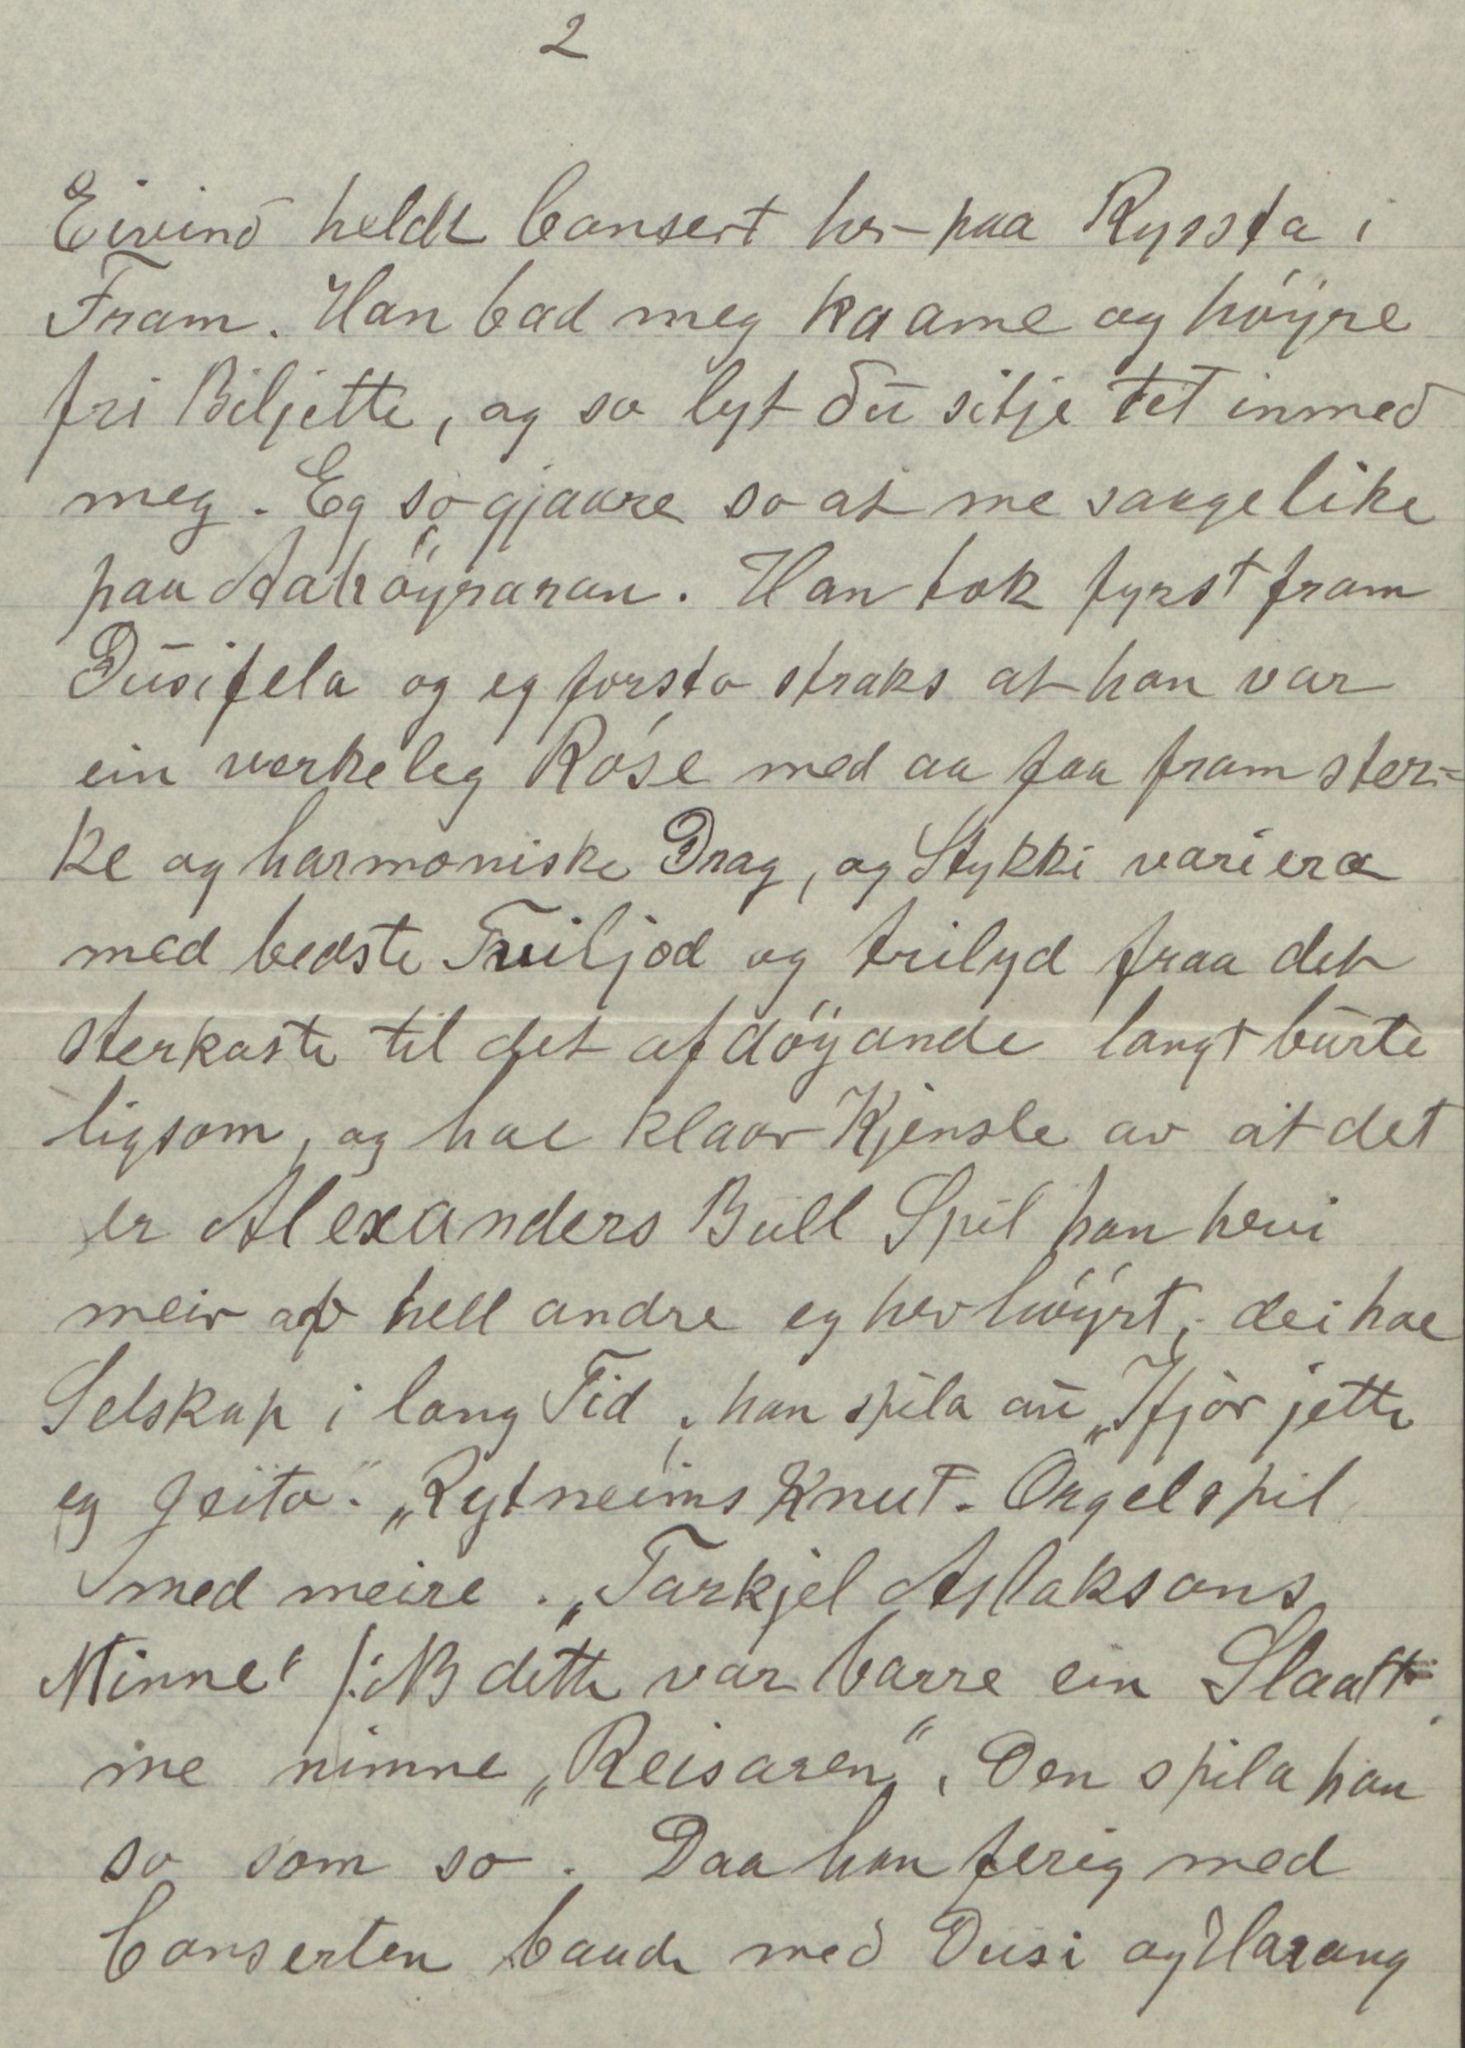 2
Eivind heldt Consert her-paa Ryssta i
Fram. Han bad meg kaame og höyre
fri Biljette, og so lyt du sitje tet inmed
meg. Eg so gjaare so at me saage like
paa Aahöyraran. Han tok fyrst fram
Dusifela og eg forsto straks at han var
ein verkeleg Röse med aa faa fram ster-
ke og harmoniske Drag, og Stykki variera
med bedste Tviljod og trilyd fraa det
sterkaste til det afdöyande langt burte
ligsom, og hae klaar Kjensle av at det
er Alexanders Bull Spil han hevi
meir af hell andre eg hev höyrt, dei hae
Selskap i lang Tid, han spila au „Ifjör jette
eg Geita." „Rytneims Knut. Orgelspil
med meire. „Tarkjel Aslaksons
Minne" /: NB dette var barre ein Slaatt
me nimne „Reisaren". Den spila han
so som so. Daa han ferig med
Conserten baade med Dusi og Harang